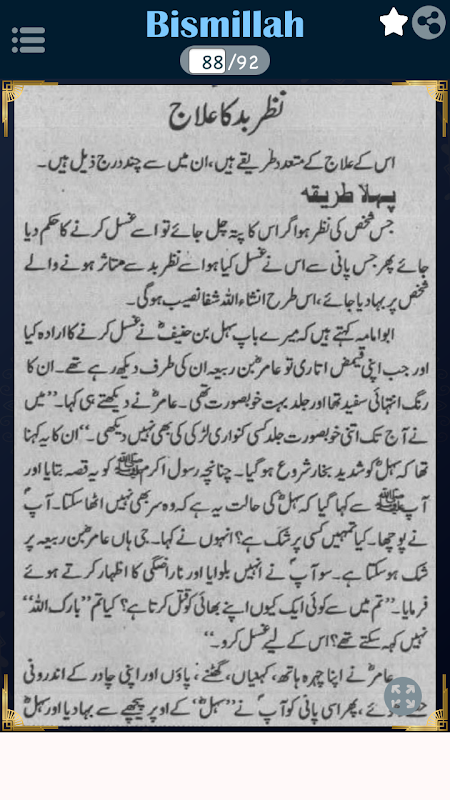 Bismillah
88/92
نظر بد کا علاج
اس کے علاج کے متعدد طریقے ہیں، ان میں سے چند درج ذیل ہیں۔
پہلا طریقہ
جس شخص کی نظر ہو اگر اس کا پتہ چل جائے تو اسے غسل کرنے کا حکم دیا
جائے پھر جس پانی سے اس نے غسل کیا ہو اسے نظر بد سے متاثر ہونے والے
شخص پر بہا دیا جائے، اس طرح انشاء اللہ شفا نصیب ہوگی۔
ابوامامہ کہتے ہیں کہ میرے باپ سہل بن حنیفؓ نے غسل کرنے کا ارادہ کیا
اور جب اپنی قمیض اتاری تو عامرؓ بن ربیعہ ان کی طرف دیکھ رہے تھے۔ ان کا
رنگ انتہائی سفید تھا اور جلد بہت خوبصورت تھی۔ عامرؓ نے دیکھتے ہی کہا۔ ’’میں
نے آج تک اتنی خوبصورت جلد کسی کنواری لڑکی کی بھی نہیں دیکھی۔‘‘ ان کا یہ کہنا
تھا کہ سہلؓ کو شدید بخار شروع ہوگیا۔ چنانچہ رسول اکرم ﷺ کو یہ قصہ بتایا اور
آپ ﷺ سے کہا گیا کہ سہلؓ کی حالت یہ ہے کہ وہ سر بھی نہیں اٹھا سکتا۔ آپؐ
نے پوچھا۔ کیا تمہیں کسی پر شک ہے؟ انہوں نے کہا۔ جی ہاں عامرؓ بن ربیعہ پر
شک ہو سکتا ہے۔ سو آپؐ نے انہیں بلوایا اور ناراضگی کا اظہار کرتے ہوئے
فرمایا۔ ’’تم میں سے کوئی ایک کیوں اپنے بھائی کو قتل کرتا ہے؟ کیا تم ’’بارک اللہ‘‘
نہیں کہہ سکتے تھے؟ اس کے لیے غسل کرو۔‘‘
عامرؓ نے اپنا چہرہ ہاتھ، کہنیاں، گھٹنے، پاؤں اور اپنی چادر کے اندرونی
دھوئے، پھر اسی پانی کو آپؐ نے ’’سہلؓ‘‘ کے اوپر پیچھے سے بہا دیا اور سہلؓ